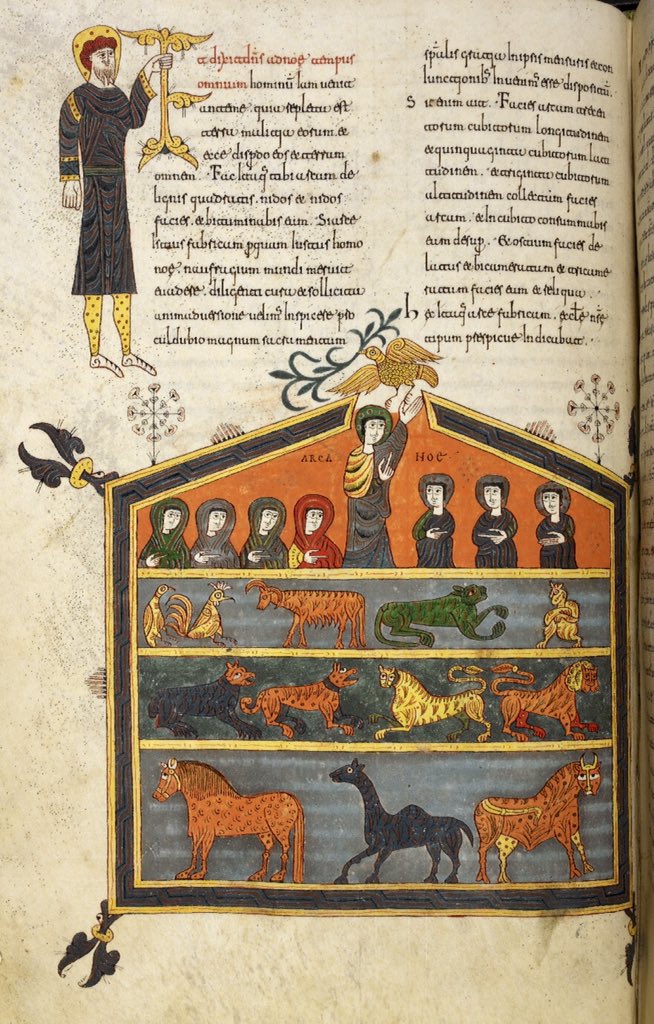 et dixit dns ad noe tempus
omnium hominū iam venit
ante me quia repleta est
terra malitia eorum et
ecce disperdo eos et terram
omnem. Fac itaq tibi arcam de
lignis quadratis. nidos et nidos
facies. et bituminabis eam. Si iste
istius fabricam per quam iustus homo
noe naufragium mundi meruit
evadere. diligenti cura et sollicita
animadversione velim inspicere pro
cul dubio magnum sacramentum
spūlis gratia in ipsis mensuris et con
iunctionib invenim esse dispositū.
Sic enim ait. Facies arcam trecen
torum cubitorum longitudinem
et quinquaginta cubitorum lati
tudinem. et triginta cubitorum
altitudinem collectam facies
arcam. et in cubito consummabis
eam desup. Et ostium facies de
latus et bicameratam et tricame
ratam facies eam et reliqua.
hec itaq arce fabricam. eccle nsre
tipum prspicue indicabat.
ARCA NOE